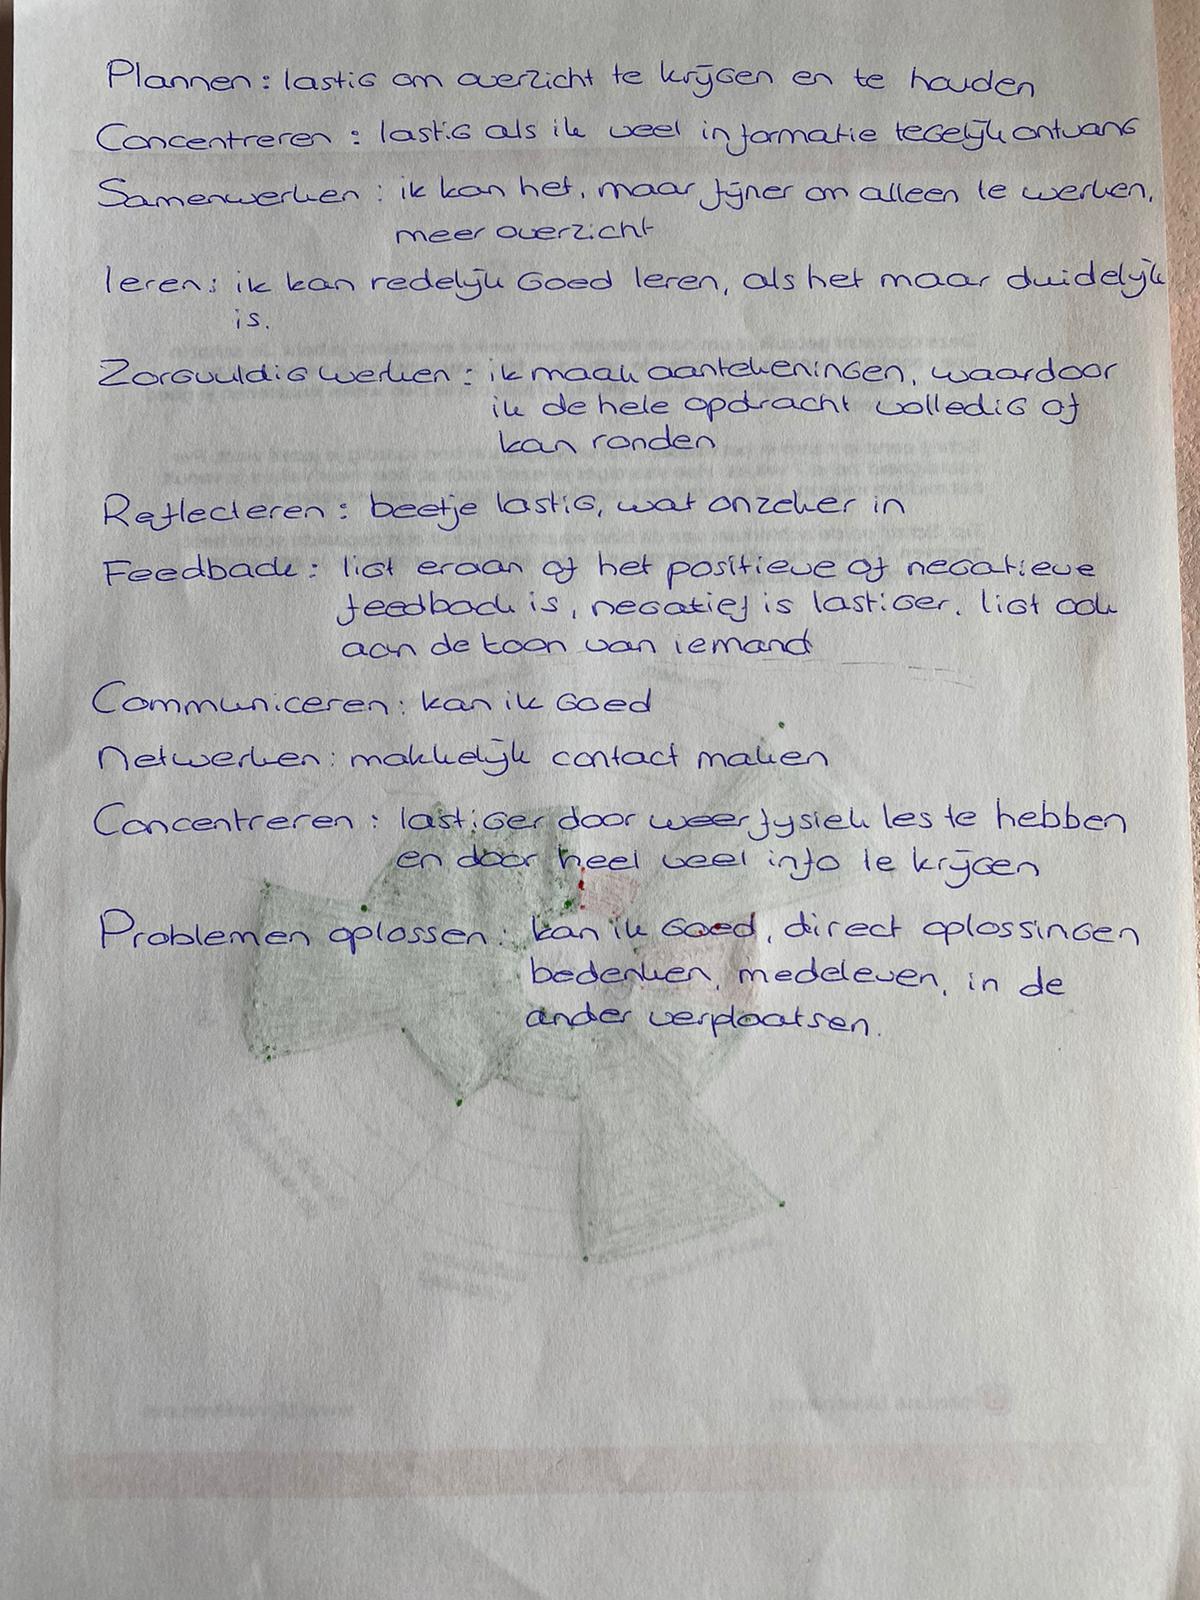 Plannen: lastig om overzicht te krijgen en te houden
Concentreren: lastig als ik veel informatie tegelijk ontvang
Samenwerken: ik kan het, maar fijner om alleen te werken,
meer overzicht
leren: ik kan redelijk goed leren, als het maar duidelijk
is.
Zorgvuldig werken: ik maak aantekeningen, waardoor
ik de hele opdracht volledig af
kan ronden
Reflecteren: beetje lastig, wat onzeker in
Feedback: ligt eraan of het positieve of negatieve
feedback is, negatief is lastiger. ligt ook
aan de toon van iemand
Communiceren: kan ik goed
Netwerken: makkelijk contact maken
Concentreren: lastiger door weer fysiek les te hebben
en door heel veel info te krijgen
Problemen oplossen: kan ik goed, direct oplossingen
bedenken, medeleven, in de
ander verplaatsen.